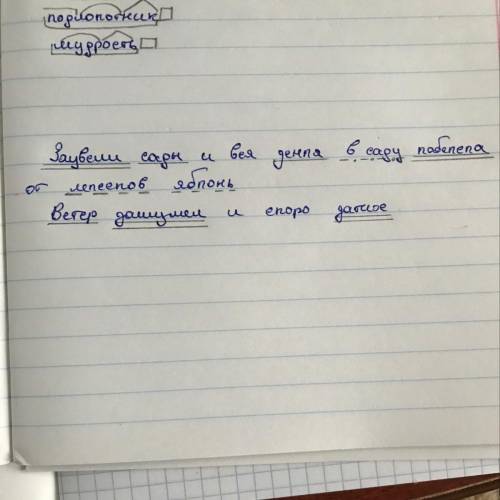 подлопотник
мудрость
Зацвели сады и вся денпя в саду побепепа
от лепсепов яблонь
Ветер дашумел и споро датное